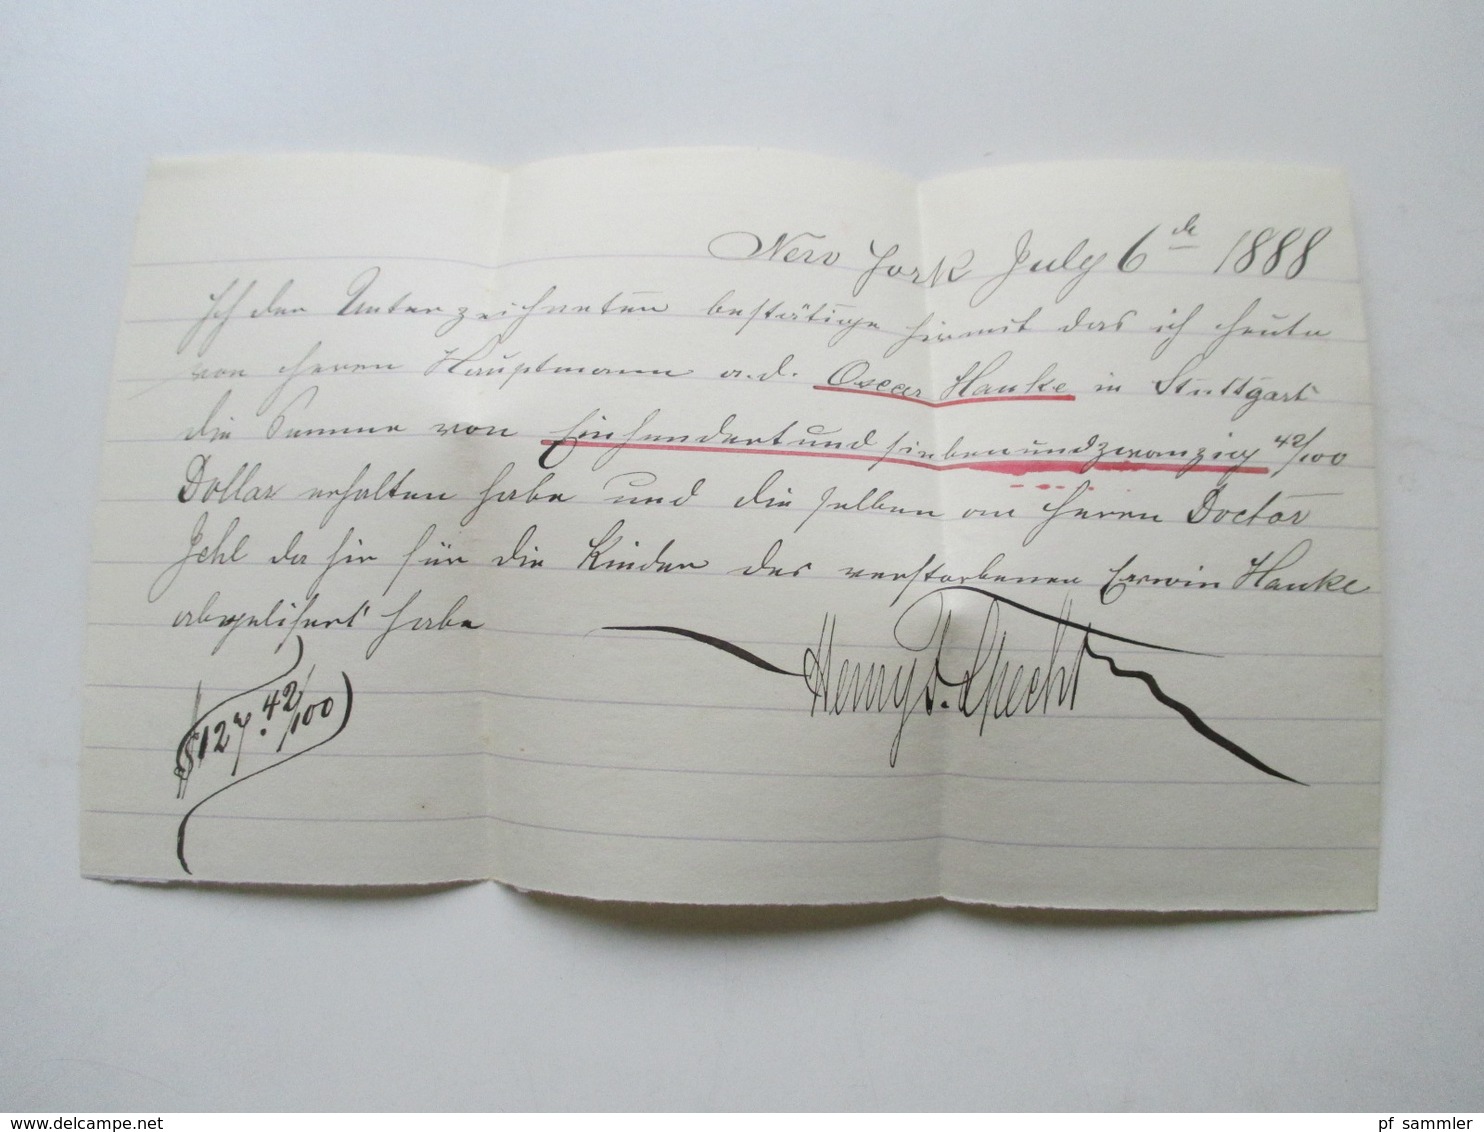 New York July 6th 1888
Ich der Unterzeichneten bestätige hiermit das ich heute
von Herrn Hauptmann a.d. Oscar Hauke in Stuttgart
die Summe von Einhundertundsiebenundzwanzig 42/100
Dollar erhalten habe und die selben an Herrn Doctor
Jehl da hir für die Kinder des verstorbenen Erwin Hauke
abgelifert habe
Henry F. Specht
$127.42/100
pf sammler